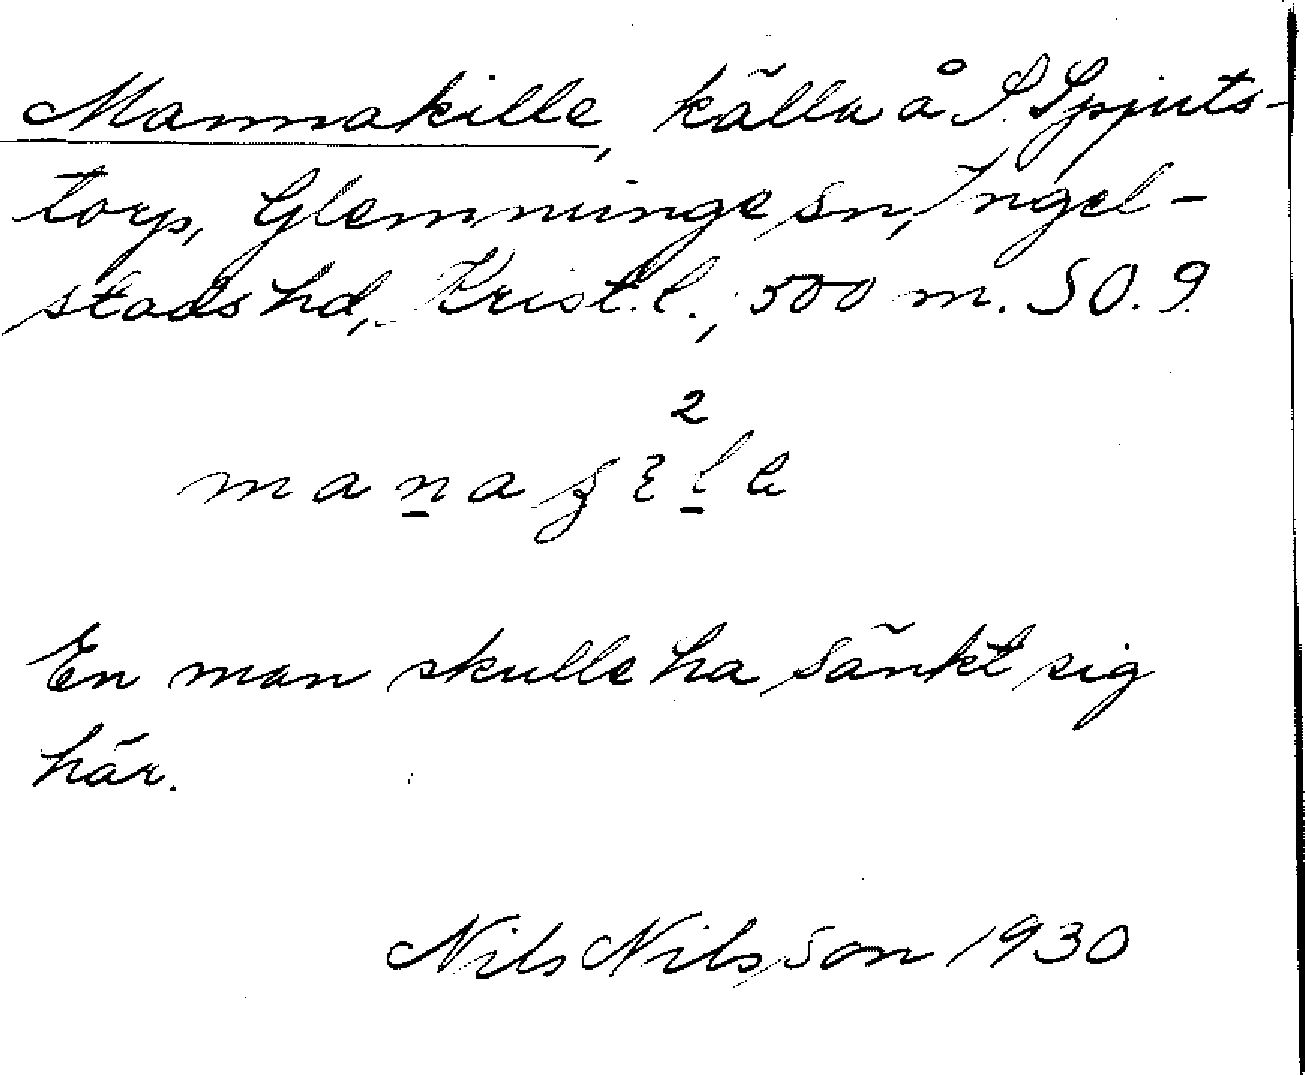 Mannakille, källa å S. Spjuts-
torp, Glemminge sn, Ingel-
stads hd, Krist. l., 500 m. SO. g.
2
En man skulle ha sänkt sig
här.
Nils Nilsson 1930